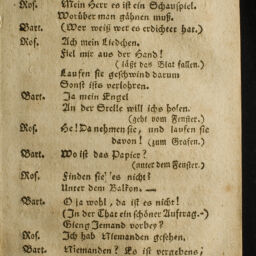 Ros. Mein Herr es ist ein Schauspiel.
Worüber man gähnen muß.
Bart. (Wer weiß wer es erdichter hat.)
Ros. Ach mein Liedchen.
Fiel mir aus der Hand!
(läßt das Blat fallen.)
Laufen sie geschwind darum
Sonst ists verlohren.
Bart. Ja mein Engel
An der Stelle will ichs holen.
(geht vom Fenster.)
Ros. He! Da nehmen sie, und laufen sie
davon! (zum Grafen.)
Bart. Wo ist das Papier?
(unter dem Fenster.)
Ros. Finden sie' es nicht?
Unter dem Balkon. —
Bart. O ja wohl, da ist es nicht!
(In der That ein schöner Auftrag.-)
Gieng Jemand vorbey?
Ros. Ich hab Niemanden gesehen.
Bart. Niemanden? Es ist vergebens;